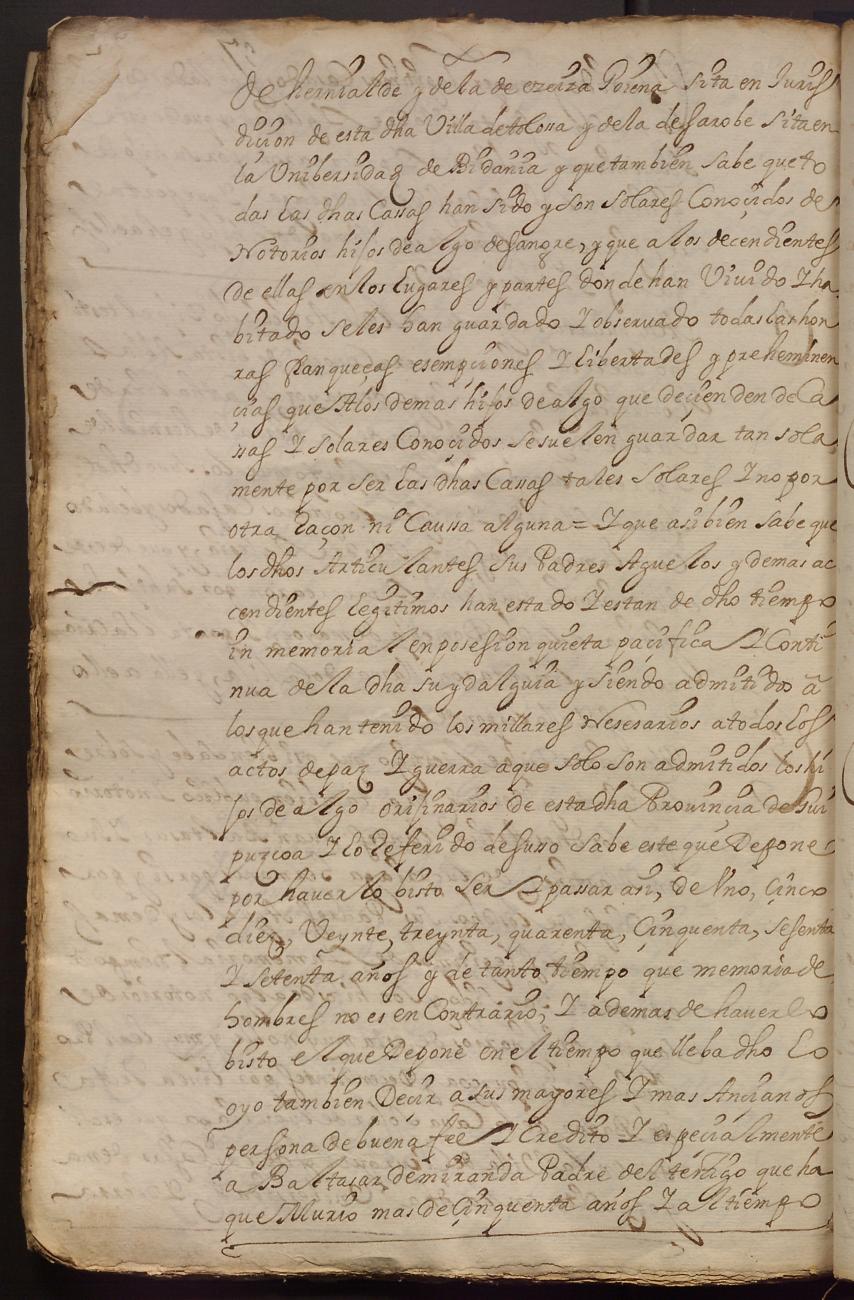 de hernialde y de la de ezeiza Goiena sita en Juris
dicion de esta dha Villa de tolossa y de la de sarobe sita en
la Vnibersidad de Bidania y que tambien sabe que to
das las dhas Cassas han sido y son solares Conoçidos de
Notorios hijos de algo de sangre, y que a los decendientes
de ellas en los lugares y partes donde han Viuido Y ha
bitado se les han guardado Y obseruado todas las hon
ras franqueças esempçiones Y libertades y preheminen
çias que A los demas hijos de algo que deçienden de Ca
ssas Y solares Conoçidos se suelen guardar tan sola
mente por ser las dhas Cassas tales solares Y no por
otra Raçon ni Caussa alguna = Y que asi bien sabe que
los dhos Articulantes sus Padres Aguelos y demas ac
cendientes legitimos han estado Y estan de dho tiempo
in memorial en posesion quieta pacifica Y Conti
nua de la dha su ydalguia y siendo admitidos a
los que han tenido los millares Nesesarios a todos los
actos de paz Y guerra a que solo son admitidos los hi
jos de algo orijinarios de esta dha Prouinçia de Gui
puzcoa Y lo Referido desuso sabe este que Depone
por hauerlo bisto ser Y passar asi, de Vno, Çinco
diez, Veynte, treynta, quarenta, Çinquenta, sesenta
Y setenta años y de tanto tiempo que memoria de
hombres no es en Contrario; Y ademas de hauerlo
bisto el que Depone en el tiempo que lleba dho Lo
oyo tambien Deçir a sus mayores Y mas Ançianos
persona de buena fee Y Credito Y espeçialmente
a Baltasar de miranda Padre del testigo que ha
que Murio mas de Çinquenta años Y al tiempo